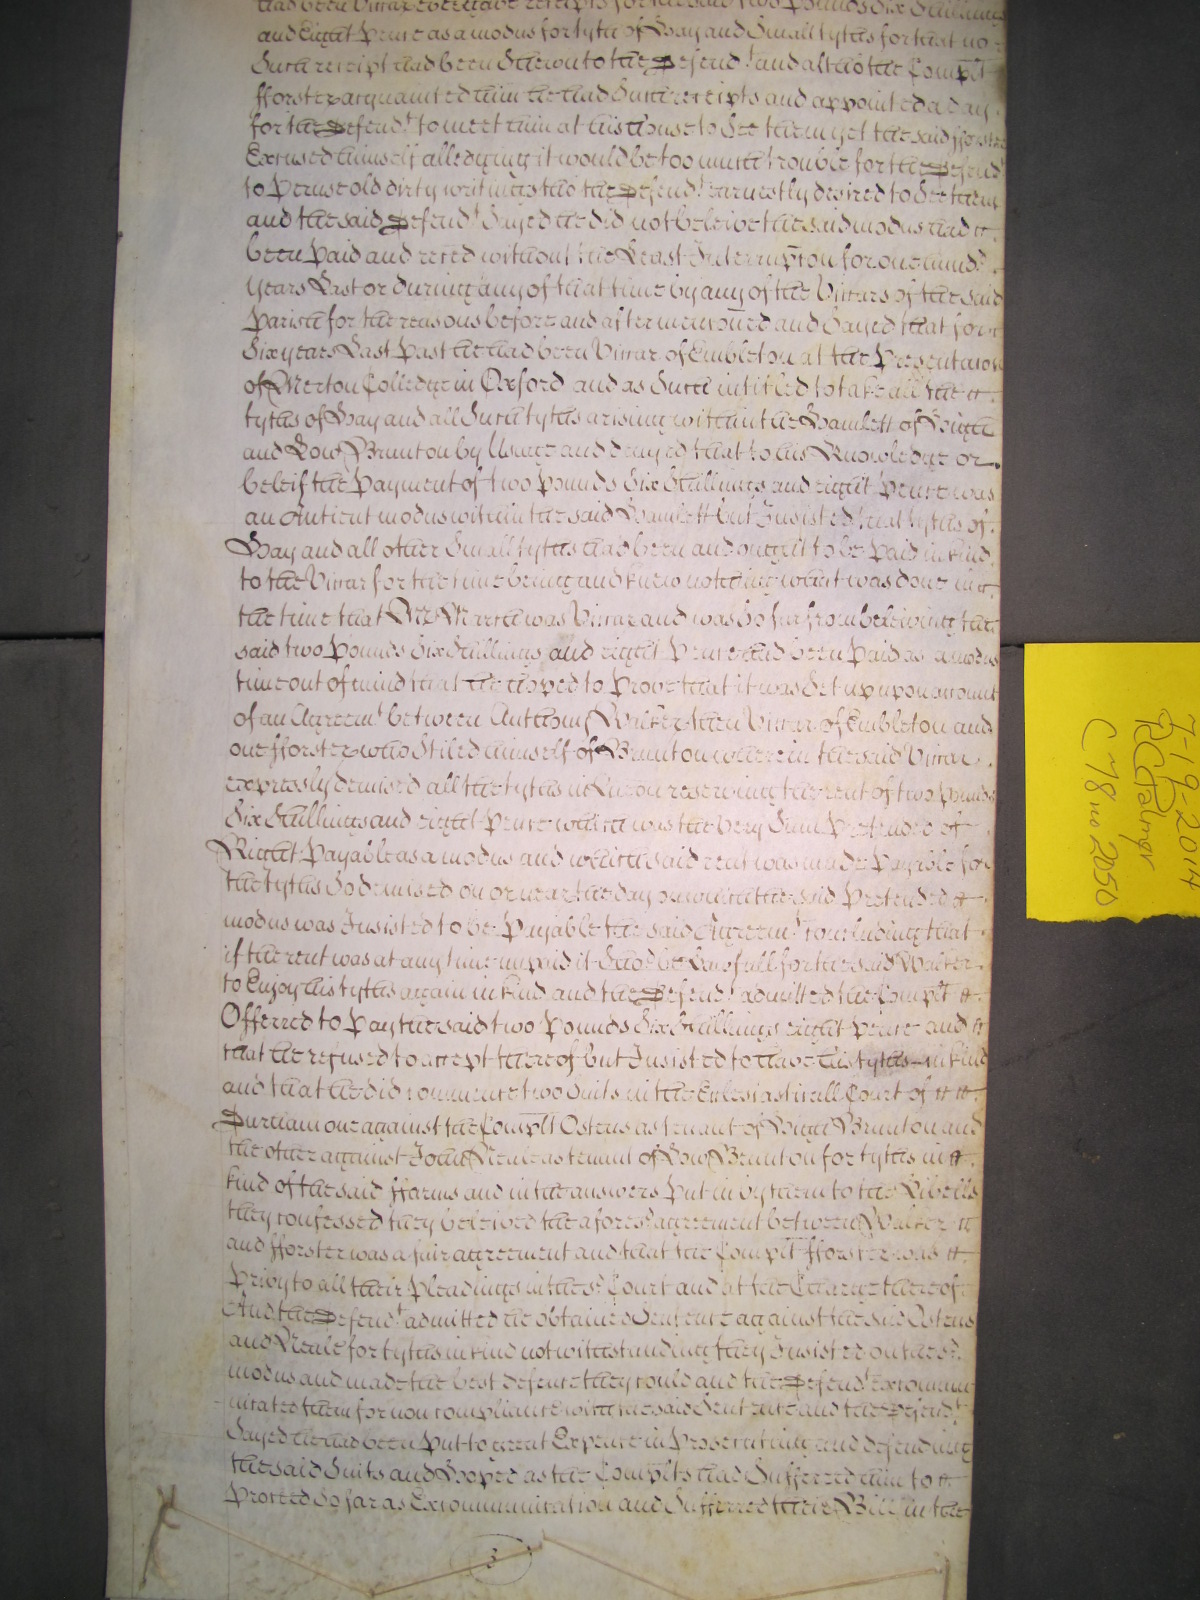 had been Vicar ever gave receipts for the said two Pounds Six Shillings
and Eight Pence as a modus for tyth of Hay and Small tyths for that no
Such receipt had been Shewn to the Defend.t and altho the Compl.t
fforster acquainted him he had Such receipts and appointed a day
for the Defend.t to meet him at his house to See them yet the said fforster
Excused himself alledging it would be too much trouble for the Defend.t
to Peruse old dirty writings tho the Defend.t earnestly desired to See them
and the said Defend.t Sayed he did not beleive the said modus had
been Paid and reced without the Least Interrupton for one hund.d
years Last or during any of that time by any of the Vicars of the said
Parish for the reasons before and after mencioned and Sayed that for
Six years Last Past he had been Vicar of Embleton at the Presentation
of Merton Colledge in Oxford and as Such intitled to take all the
tyths of Hay and all Such tyths arising within the Hamlett of High
and Low Brunton by Usage and denyed that to his Knowledge or
beleif the Payment of two Pounds Six Shillings and eight Pence was
an Antient modus within the said Hamlett but Insisted that tyths of
Hay and all other Small tyths had been and ought to be Paid in kind
to the Vicar for the time being and knew nothing what was done in
the time that Mr was Vicar and was So far from beleiving the
said two Pounds Six Shillings and eight Pence had been Paid as a modus
time out of mind that he hoped to Prove that it was Set up upon account
of an Agreem.t between Anthony Walker then Vicar of Embleton and
one fforster who Stiled himself of Brunton wherein the said Vicar
expressly demised all the tyths in reserving the rent of two Pounds
Six Shillings and eight Pence which was the very Sum Pretended of
Right Payable as a modus and which said rent was made Payable for
the tyths So demised on or near the day on which the said Pretended
modus was Insisted to be Payable the said Agreem.t Concluding that
if the rent was at any time unpaid it Sho.d be Lawfull for the said Walker
to Enjoy his tyths again in kind and the Defend.t admitted the Compl.t
Offerred to Pay the said two Pounds Six Shillings eight Pence and
that he refused to accept thereof but Insisted to have his tyths in kind
and that he did commence two Suits in the Eclesiasticall Court of
Durham one against the Compl.t Ostens as tenant of High Brunton and
the other against John Neale as tenant of Low Brunton for tyths in
kind of the said ffarms and in the answers Put in by them to the Libells
they confessed they beleived the afores.d agreement between Walker
and fforster was a fair agreement and that the Compl.t fforster was
Privy to all their Pleadings in the s.d Court and at the Charge thereof
And the Defend.t admitted he obtained Sentence against the said Ostens
and Neale for tyths in kind notwithstanding they Insisted on the s.d
modus and made the best defence they could and the Defend.t excommu
nicated them for non compliance with the said Sentence and the Defend.t
Sayed he had been Put to great Expence in Prosecuting and defending
the said Suits and Hoped as the Compl.ts had Sufferred him to
Proceed So far as Excommunication and Sufferred their Bill in the
3
7-19-2014
R C Palmer
C 78 no 2050